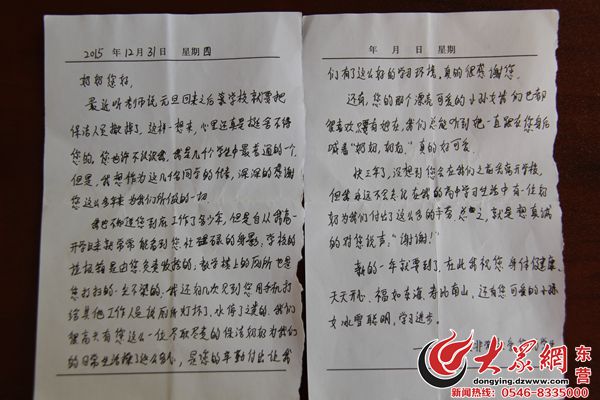 2015 年 12 月 31 日 星期 四
奶奶您好,
最近听老师说元旦回来之后某学校就要把
保洁人员撤掉了。这样一想来,心里还真是挺舍不得
您的。您也许不认识我,我是几千个学生中最普通的一个,
但是,我想作为这几千同学的代表,深深的感谢
您这么多年来为我们所做的一切。
我也不知道您到底工作了多少年,但是自从我高一
开学以来就常常能看到您忙碌的身影:学校的
垃圾箱是由您负责
教学楼上的厕所也是
您打扫的一尘不染的;我还有几次见到您用手机打
给其他工作人员
厕所灯坏了,水停了之类的。我们
很高兴有您这么一位尽职尽责的保洁奶奶为我们
的日常生活操了这么多心,是您的辛勤付出让我
年 月 日 星期
们有了这么好的学习环境,真的很感谢您。
还有,您的那个漂亮可爱的小孙女
我们也都
很喜欢
我们总能听到她一直跟在您身后
喊着"奶奶,奶奶。"真的好可爱。
快三年了,没想到您会在我们之前离开学校,
但我永远不会忘记在我的高中学习生活中有一位奶
奶为我们付出了这么多的辛劳。总之,就是想真诚
的对您说声:"谢谢!"
新的一年就要到了,在此我祝您身体健康、
天天开心、福如东海、寿比南山,还有您可爱的小孙
女冰雪聪明,学习进步。
大众网 东营
dongying.dzwww.com
新闻热线:0546-8335000